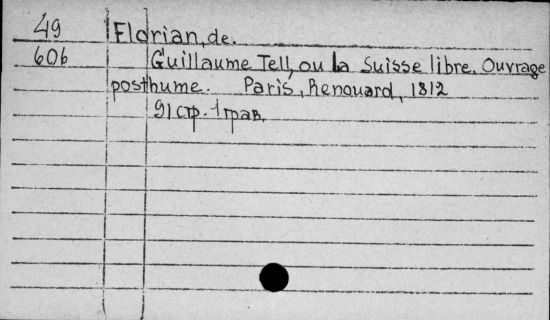 49 Florian, de.
606 Guillaume Tell, ou la Suisse libre. Ouvrage
posthume. Paris, Renouard, 1812
91 стр. 1 грав.